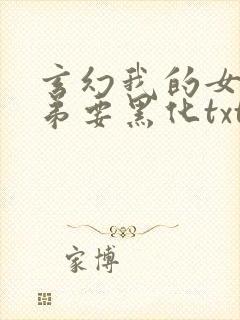 玄幻我的女
弟要黑化txt
家博